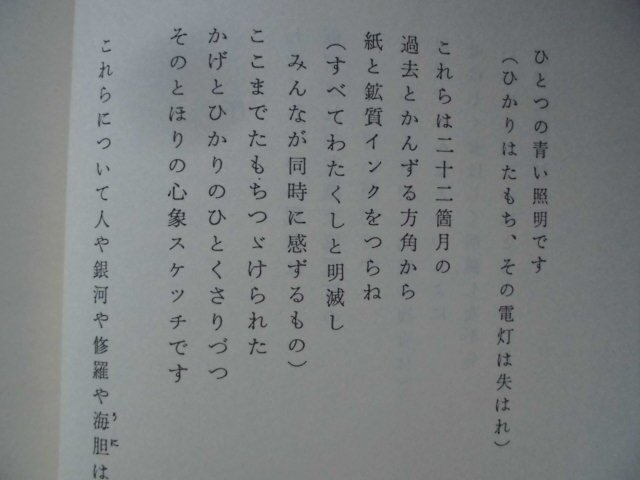 ひとつの青い照明です
（ひかりはたもち、その電灯は失はれ）
これらは二十二箇月の
過去とかんずる方角から
紙と鉱質インクをつらね
（すべてわたくしと明滅し
みんなが同時に感ずるもの）
ここまでたもちつゞけられた
かげとひかりのひとくさりづつ
そのとほりの心象スケッチです
これらについて人や銀河や修羅や海胆は
うに